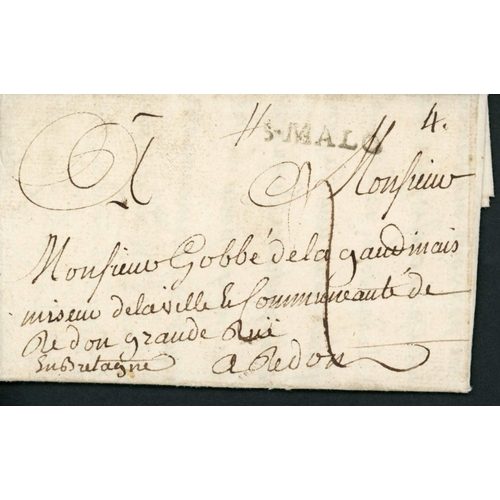 S.MALO
4.
A Monsieur
Monsieur Gobbé de la gaudinais
miseur de la ville & Communeauté de
Redon grande Ruë
En Bretagne
a Redon